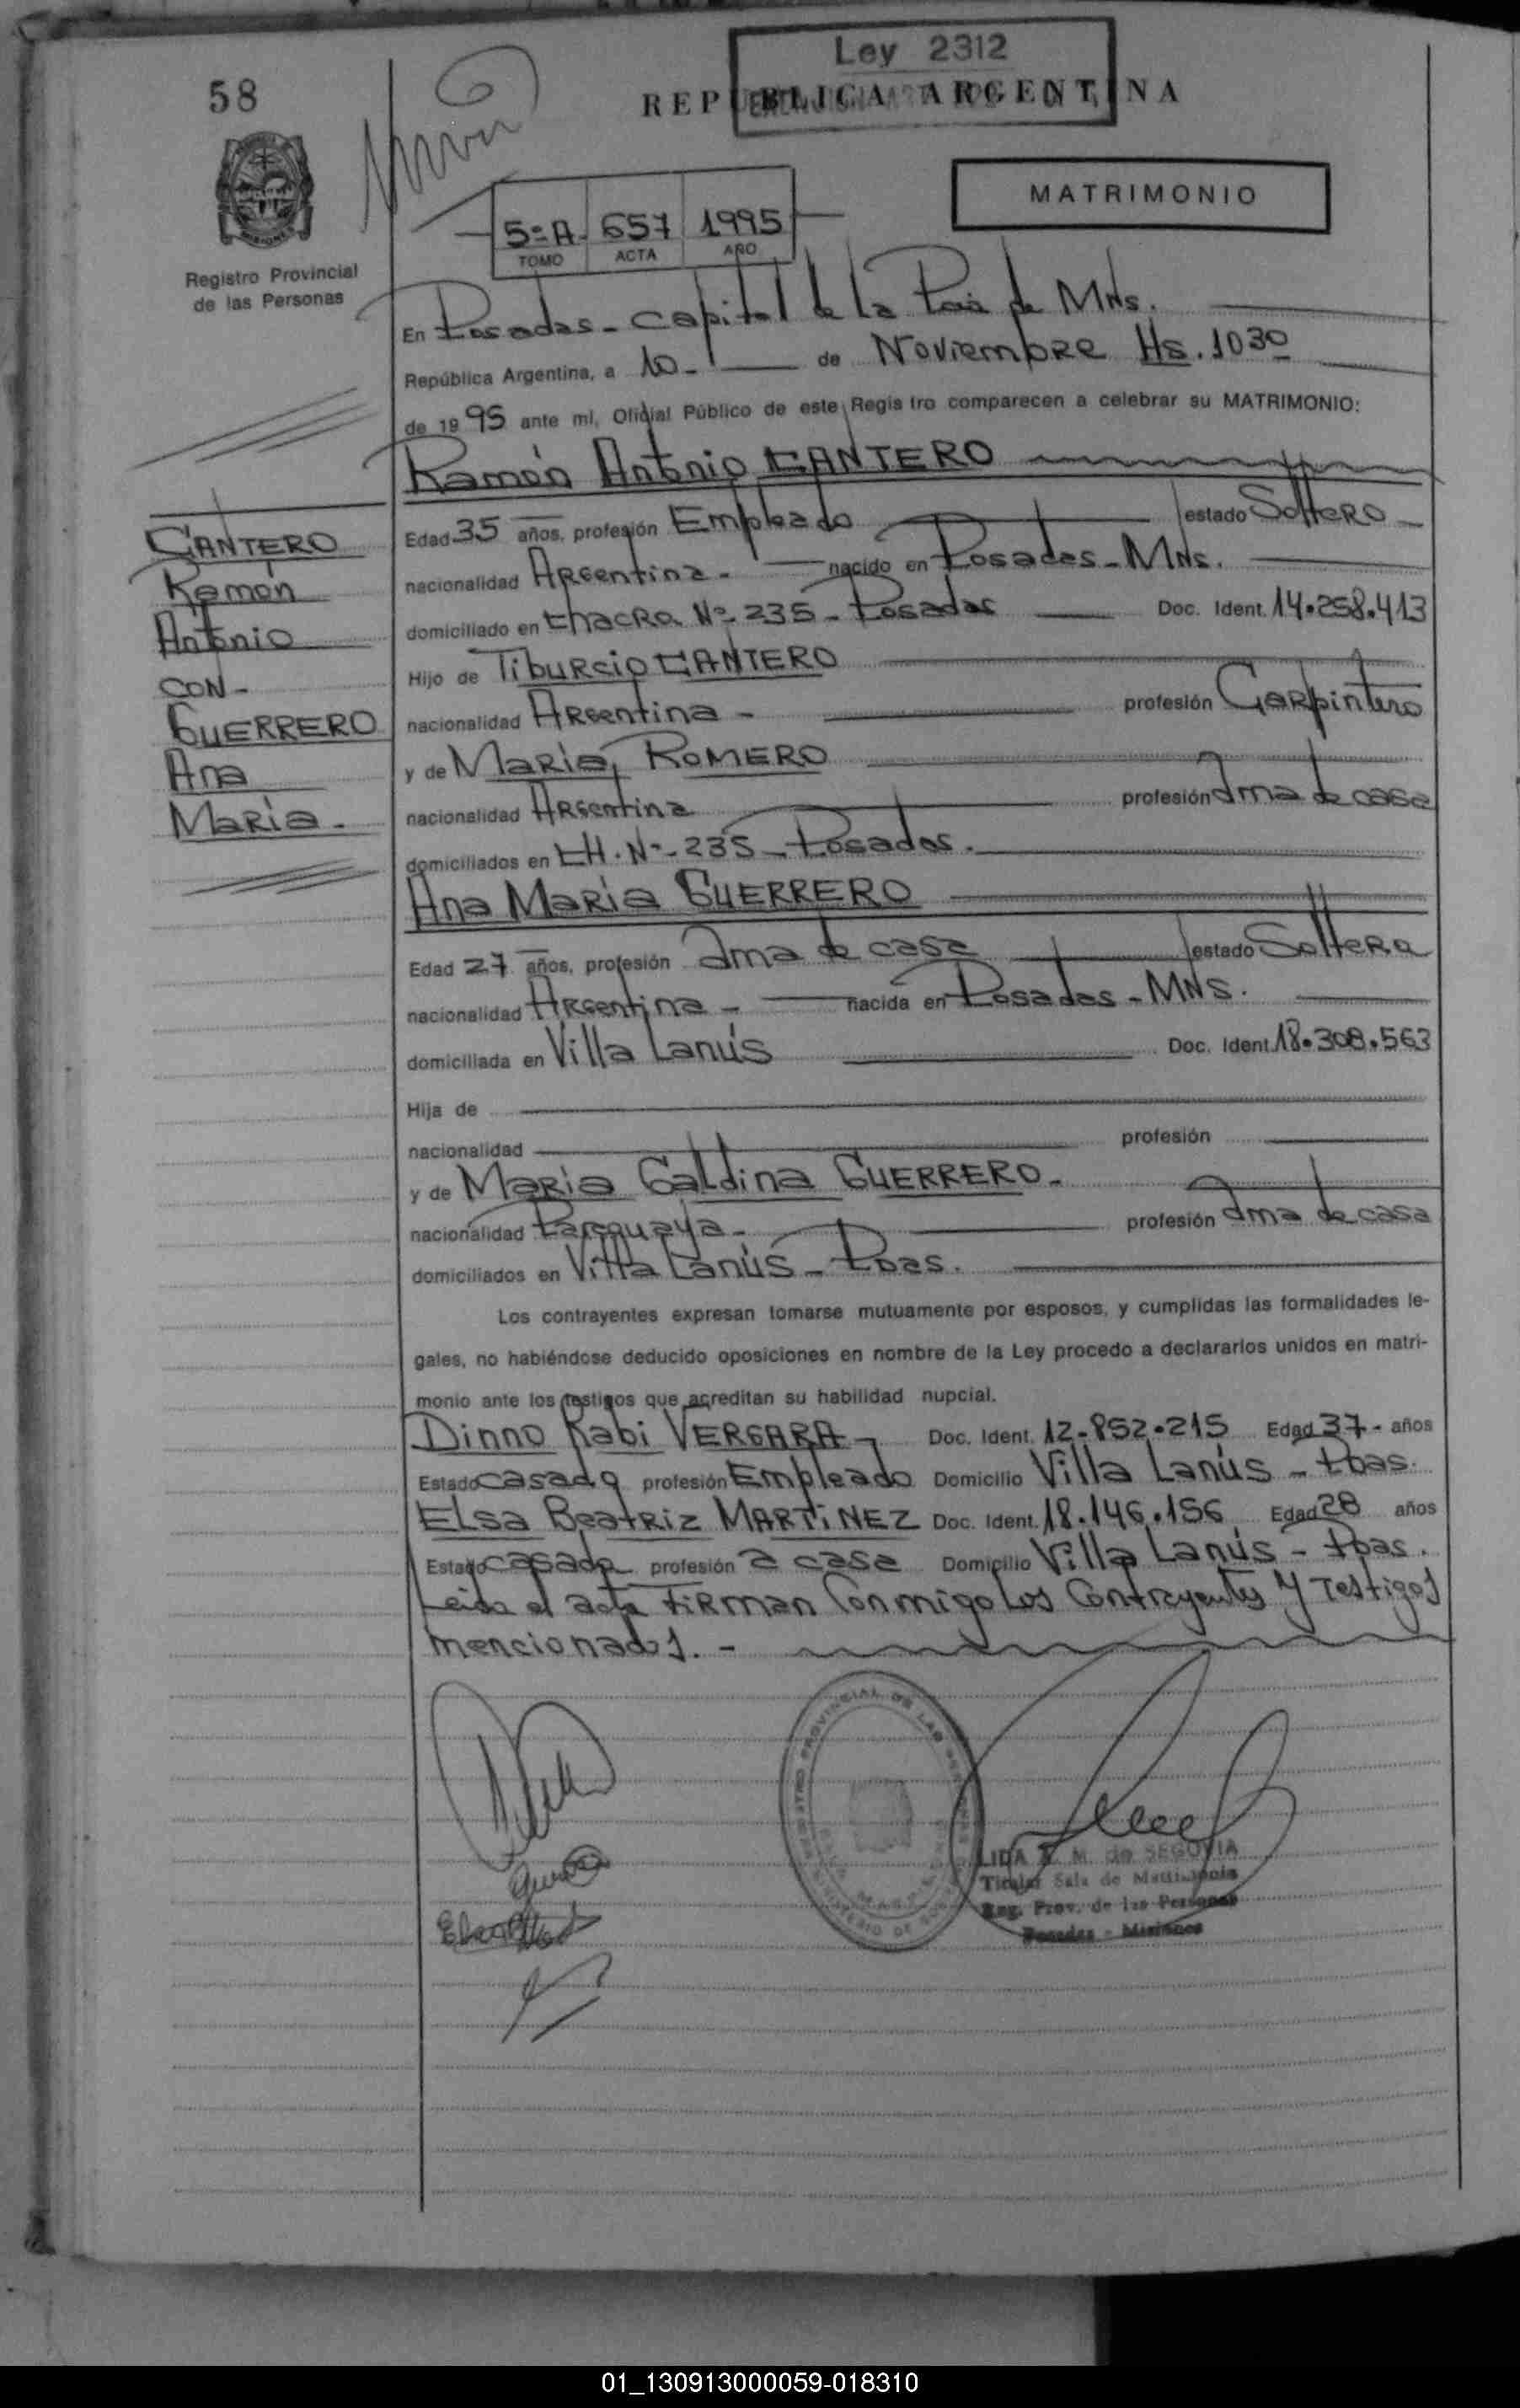 58
Ley 2312
REPUBLICA ARGENTINA
MATRIMONIO
5º A. 657 1995
TOMO ACTA AÑO
Registro Provincial
de las Personas
En Posadas - capital de la Pcia de Mns.
República Argentina, a 10 - de Noviembre Hs. 1030
de 1995 ante mí, Oficial Público de este Registro comparecen a celebrar su MATRIMONIO:
Ramón Antonio CANTERO
Edad 35 años, profesión Empleado estado Soltero
nacionalidad Argentina - nacido en Posadas - Mns.
domiciliado en Chacra Nº 235 - Posadas Doc. Ident. 14.258.413
Hijo de Tiburcio CANTERO
nacionalidad Argentina - profesión Carpintero
y de María ROMERO
nacionalidad Argentina profesión Ama de casa
domiciliados en CH. Nº 235 - Posadas.
CANTERO
Ramón
Antonio
CON -
GUERRERO
Ana
María.
Ana María GUERRERO
Edad 27 años, profesión Ama de casa estado Soltera
nacionalidad Argentina - nacida en Posadas - MNS.
domiciliada en Villa Lanús Doc. Ident. 18.308.563
Hija de
nacionalidad profesión
y de María Galdina GUERRERO -
nacionalidad Paraguaya - profesión Ama de casa
domiciliados en Villa Lanús - Pdas.
Los contrayentes expresan tomarse mutuamente por esposos, y cumplidas las formalidades le-
gales, no habiéndose deducido oposiciones en nombre de la Ley procedo a declararlos unidos en matri-
monio ante los testigos que acreditan su habilidad nupcial.
Dinno Rabi VERGARA - Doc. Ident. 12.852.215 Edad 37 - años
Estado casado profesión Empleado Domicilio Villa Lanús - Pdas.
Elsa Beatriz MARTiNEZ Doc. Ident. 18.146.156 Edad 28 años
Estado casada profesión a casa Domicilio Villa Lanús - Pdas.
Leida el acta firman Conmigo Los Contrayentes y Testigos
mencionados. -
REGISTRO PROVINCIAL DE LAS PERSONAS
LIDA M. de SEGOVIA
Titular Sala de Matrimonio
Reg. Prov. de las Personas
Posadas - Misiones
01_130913000059-018310